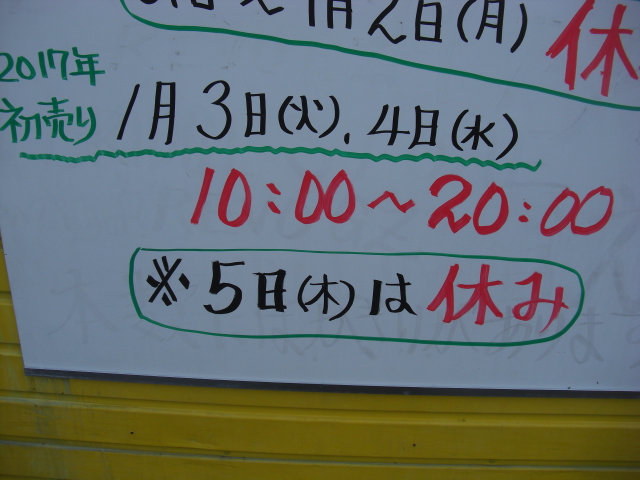 1月2日(月) 休
2017年
初売り 1月3日(火).4日(水)
10:00〜20:00
※5日(木)は休み